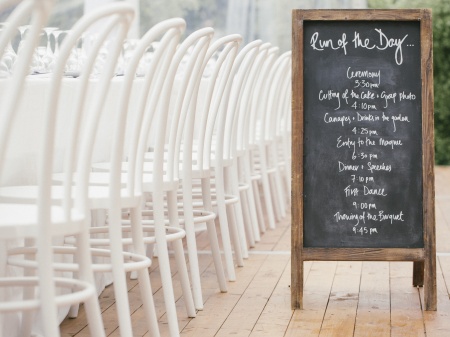 Run of the Day...
Ceremony
3:30pm
Cutting of the Cake + Group photo
4:10 pm
Canapes + Drinks in the garden
4:25pm
Entry to the Marquee
6:30 pm
Dinner + Speeches
7:10pm
First Dance
9:00pm
Throwing of the Bouquet
9:45pm